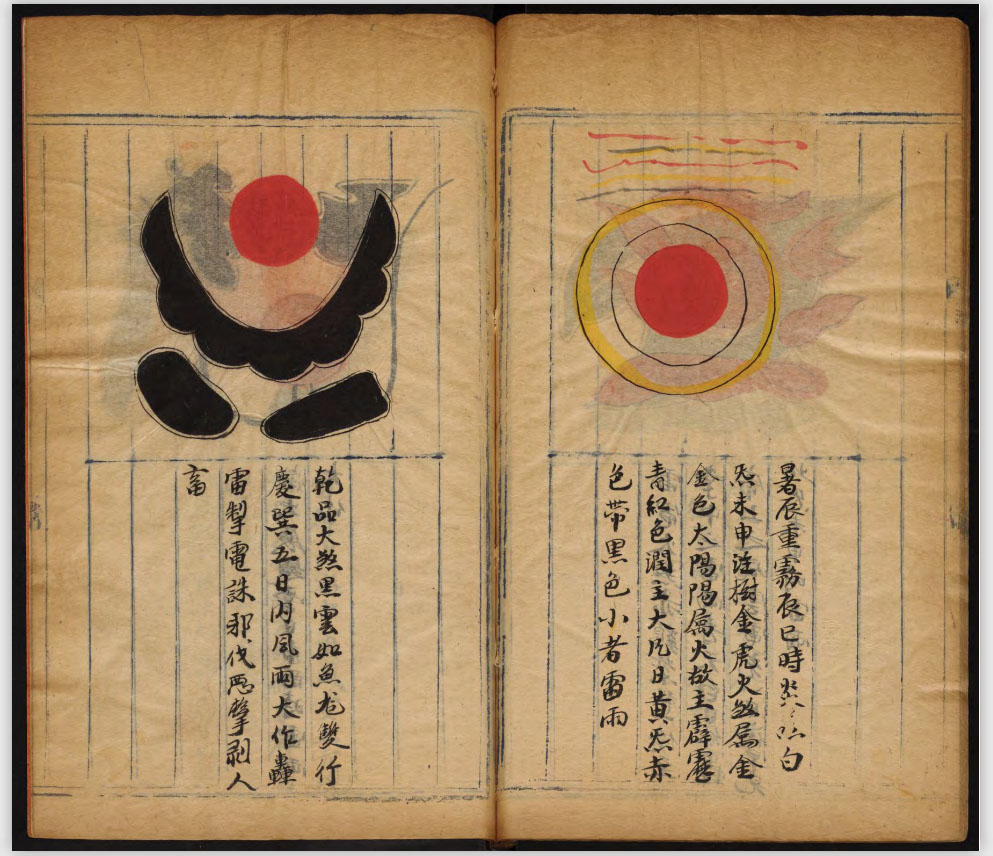 暑辰重霧辰巳時炎〻 白
炁未申注樹金虎火煞属金
金色太陽陽属火故主霹靂
青紅色潤主大凡日黄炁赤
色帶黑色小者雷雨
乾品大煞黑雲如魚龙雙行
慶巽五日内風雨大作轟
雷掣電誅邪伐惡擊剥人
畜